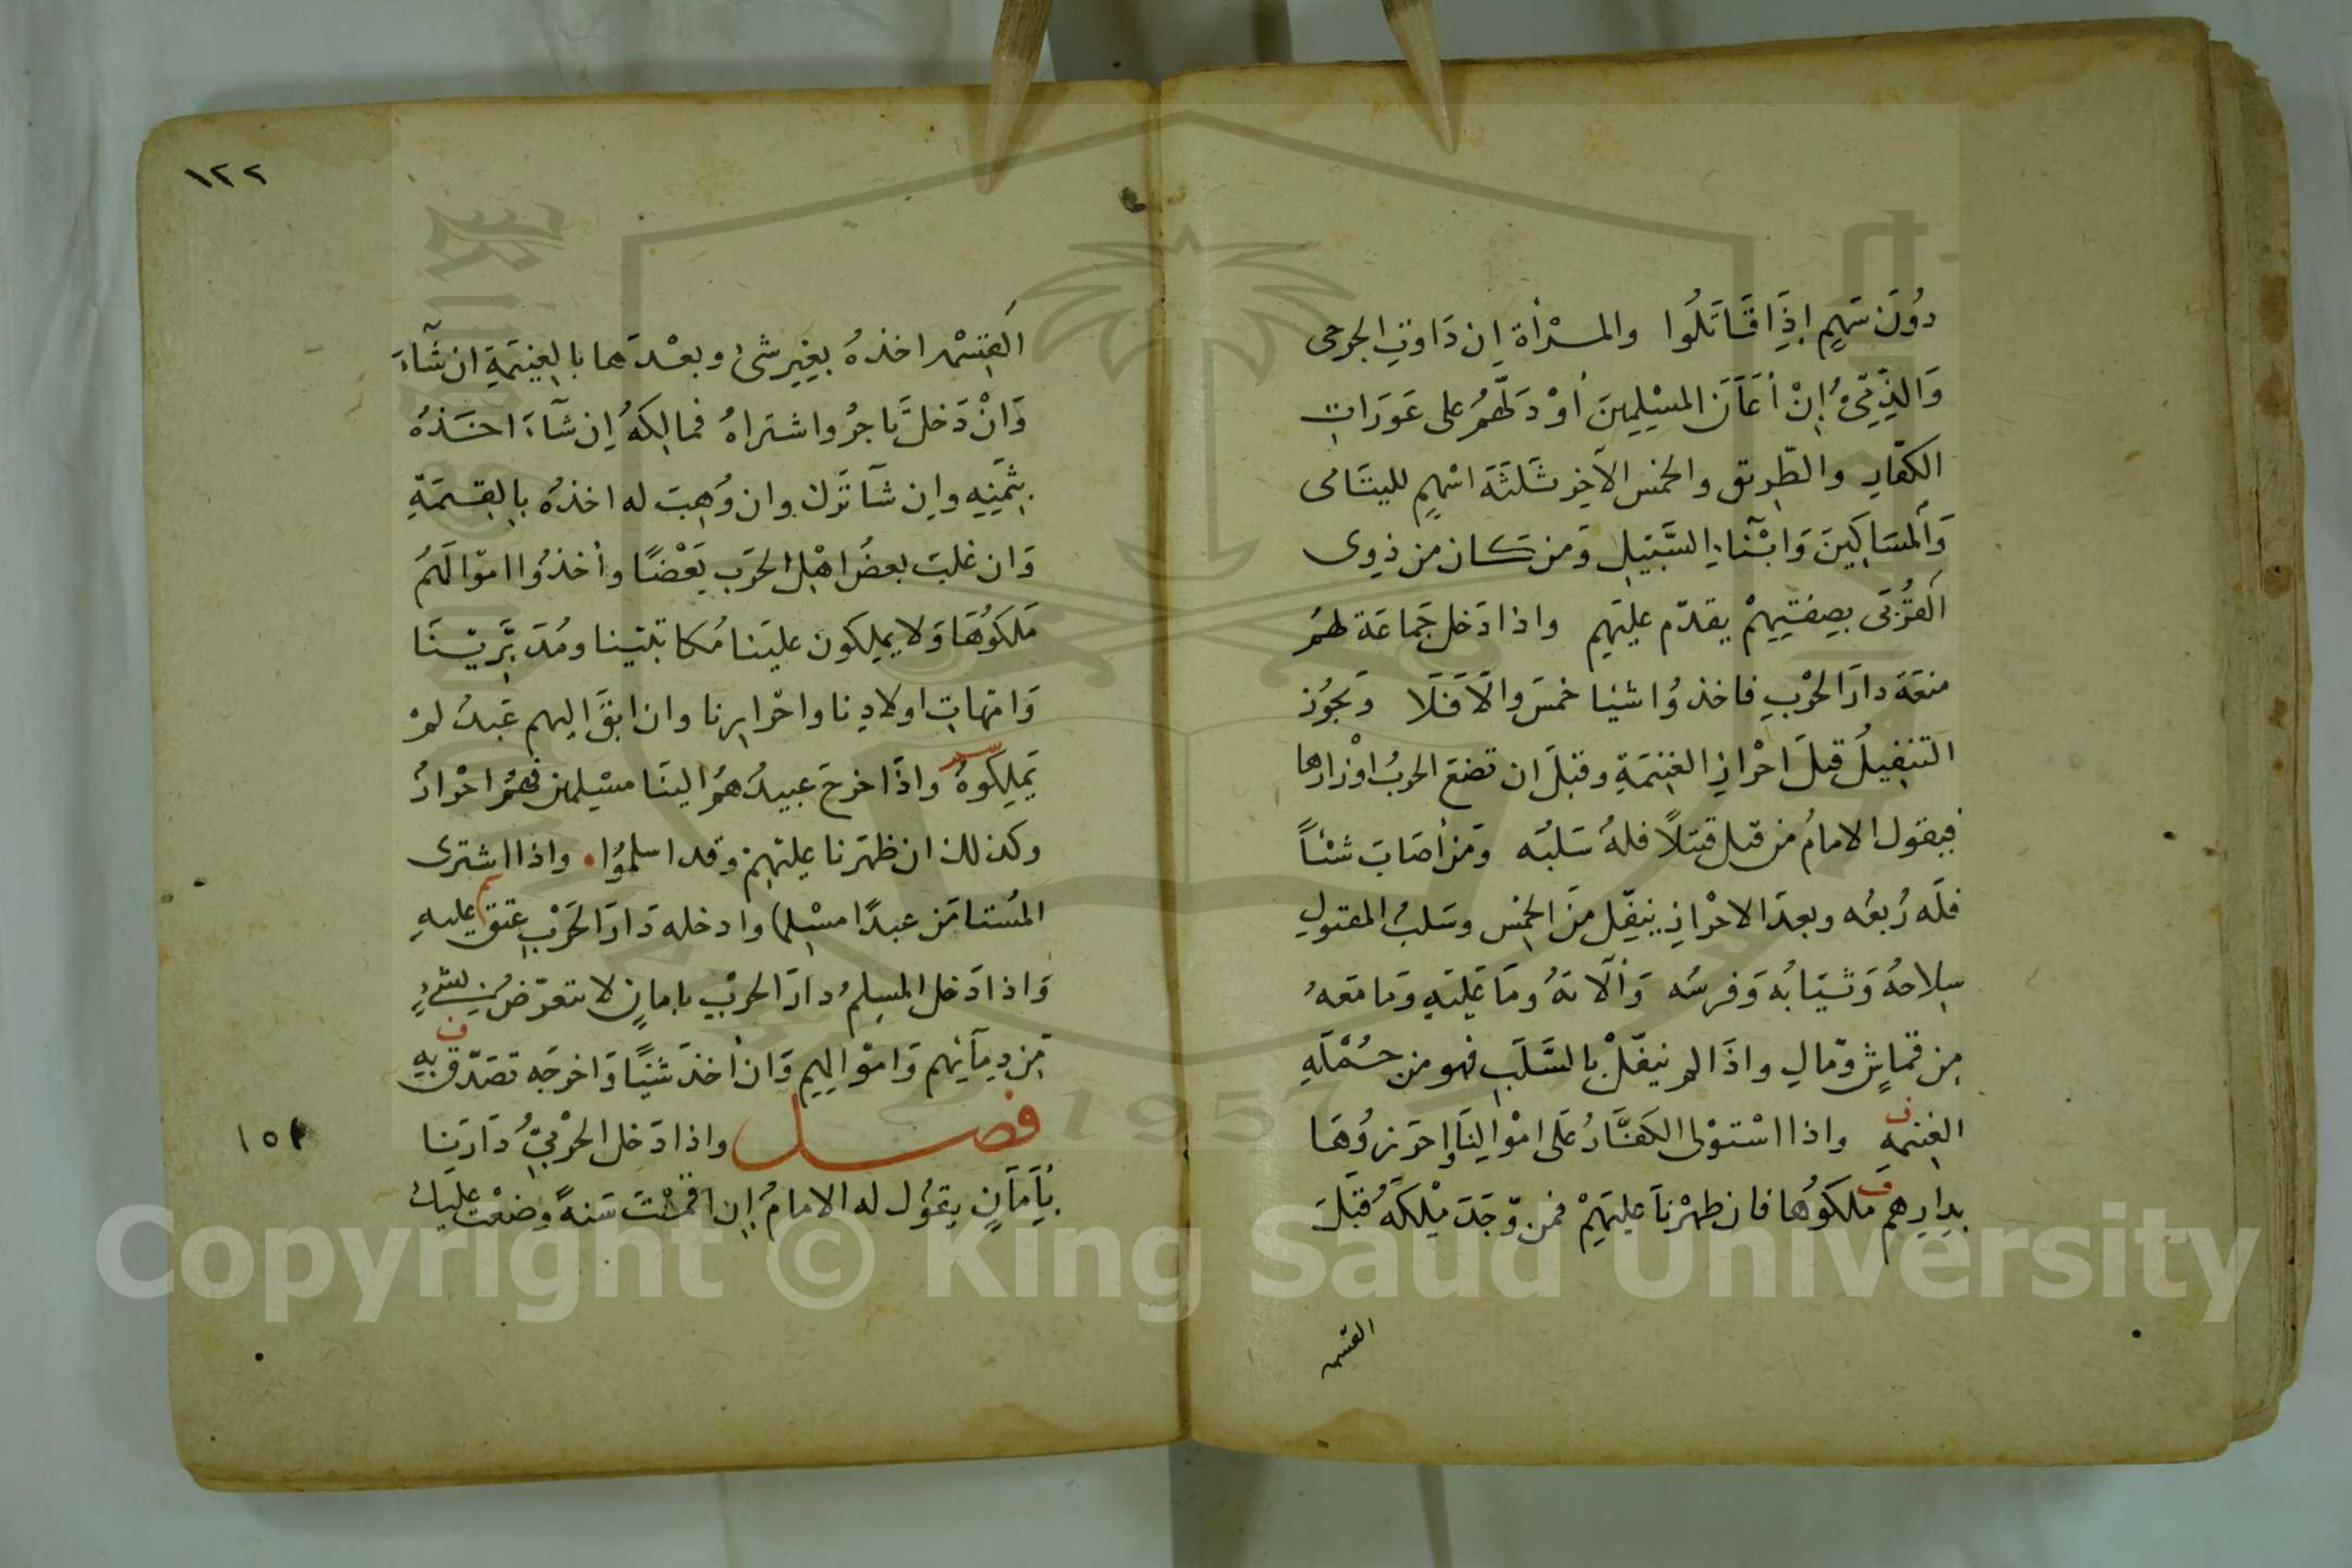 دُونَ سَهِمٍ إِذَا قَاتَلُوا والمرْأة إن دَاوتِ الجرحى
وَالذِّمِّىُّ إِنْ أَعَانَ المسْلِمِينَ أوْ دَلَّهُمْ على عَوَرَاتِ
الكفّارِ والطّرِيق والخمس الآخِر ثَلثَةَ اسْهمٍ لليتَامى
وَالمسَاكِينَ وَابْنَاءِ السَّبِيلِ وَمن كان من ذِوى
القُرْبَى بِصِفتِهِمْ يقدّم عليَهِم واذا دَخل جَماعَة لهُمْ
منعَة دارَ الحرْبِ فاخذوُا شيئا خمسَ والاَّ فَلَا وَيجُوُز
التنفِيلُ قبلَ احْرازِ الغنِمَةِ وقبلَ ان تضعَ الحربُ اوْزارها
فيقول الامامُ من قتل قتِلاً فلهُ سَلبُه وَمَن أصَابَ شئاً
فلَه رُبعُه وبعدَ الاحْرازِ ينفِّل منَ الخمُس وسَلبُ المقتولِ
سِلاحُهُ وَثيَابُهُ وَفرسُه وَآلاتهُ ومَا عَليَهِ وَمَا مَعَهُ
مِن قماشٍ ومّالٍ واذَا لم ينفّلْ بالسَّلَبِ فهو من جُمْلَةِ
الغنِمة واذا اسْتوْلى الكفَّارُ عَلَى امْوالِنَا واحرَزوُهَا
بدِارِهم مَلكوُها فان ظهرْنَا عليَهِمْ فمن وّجَدَ مِلْكَهُ قبْلَ
القسم
١٢٢
القِسْم اخذهُ بِغيرِ شىْ وبعْدَها بالغِنيمَةِ ان شَآءَ
وَانْ دَخلَ تَاجرُ واشترَاهُ فمالِكهُ إن شآءَ اخَذهُ
بِثمَنِهِ وإن شآ تَرك وان وُهِبَ له اخذهُ بِالقِسمَةِ
وَان غلبَ بعضُ اهْل الحَرَب بَعْضًا وأخذُوا امْوَالَهمْ
مَلكوُهَا وَلا يملِكون عليَنا مُكاتبَينا ومُدَبَّرِيْنَا
وَامّهاتِ اولادِنا واحْرارِنا وان ابَقَ اليهم عَبدُ لمْ
يَملِكوهُ واذَا خرجَ عبيدُهمُ الينَا مسْلمِين فهُمُ احْرارُ
وكذلك ان ظهَرنا عليهِم وقد اسلموُا واذا اشترى
المُستامَن عبدًا مسْلِما وادخله دَارَ الحَرْبِ عتق عليهِ
وَاذا دَخل المسِلمُ دارَ الحرْبِ بامانٍ لا يتعرّضُ لِشىْءٍ
مِن دِمآئِهم وَامْوالِهم وَان أخذَ شيًا وَاخرجَه تصَدّق بِهِ
فصل واذا دَخل الحرْبِىُّ دَارَنا
١٥٢
بِأمَانٍ يقوُل له الامامُ إن اقمْتَ سَنةً وضعْت عليك
Copyright © King Saud University
1957